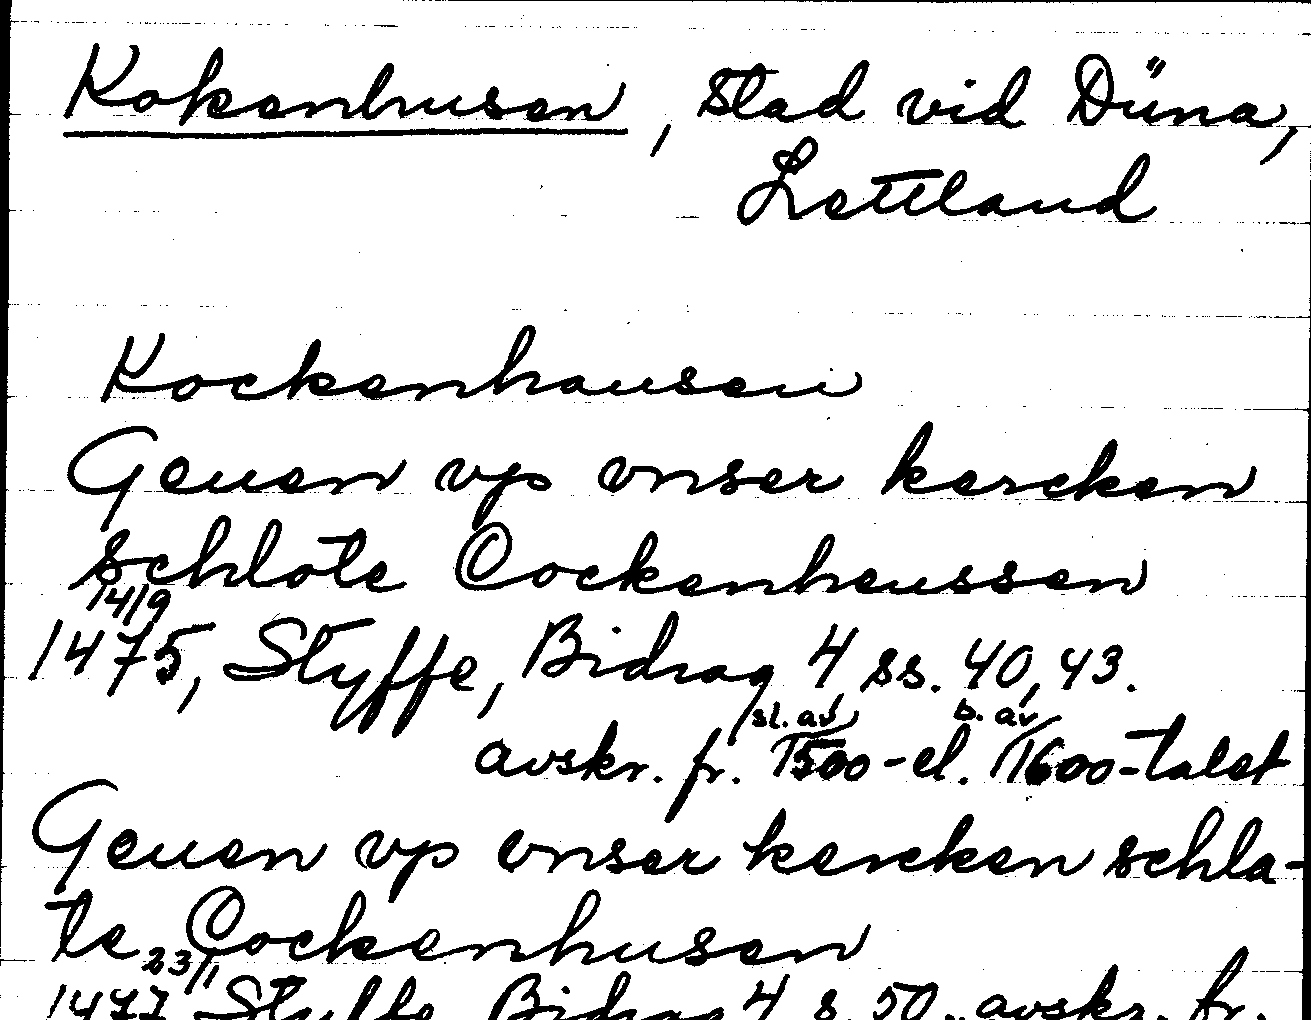 Kokenhusen, stad vid Düna,
Lettland
Kockenhausen
Geuen vp vnser kercken
schlote Cockenheussen
14/9
1475, Styffe, Bidrag 4 ss. 40, 43.
sl. av b. av
avskr. fr. 1500- el. 1600-talet
Geuen vp vnser kercken schla-
te Cockenhusen
23/1
1477 Styffe Bidrag 4 s. 50. avskr. fr.